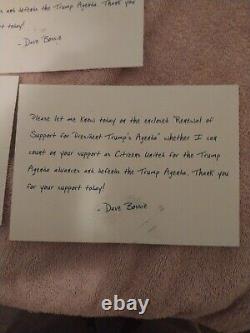 and defends the Trump Agenda. Thank you
today!
- Dave Bossie
Please let me know today on the enclosed "Renewal of
Support for President Trump's Agenda" whether I can
count on your support as Citizens United for the Trump
Agenda advances and defends the Trump Agenda. Thank you
for your support today!
- Dave Bossie
ebay